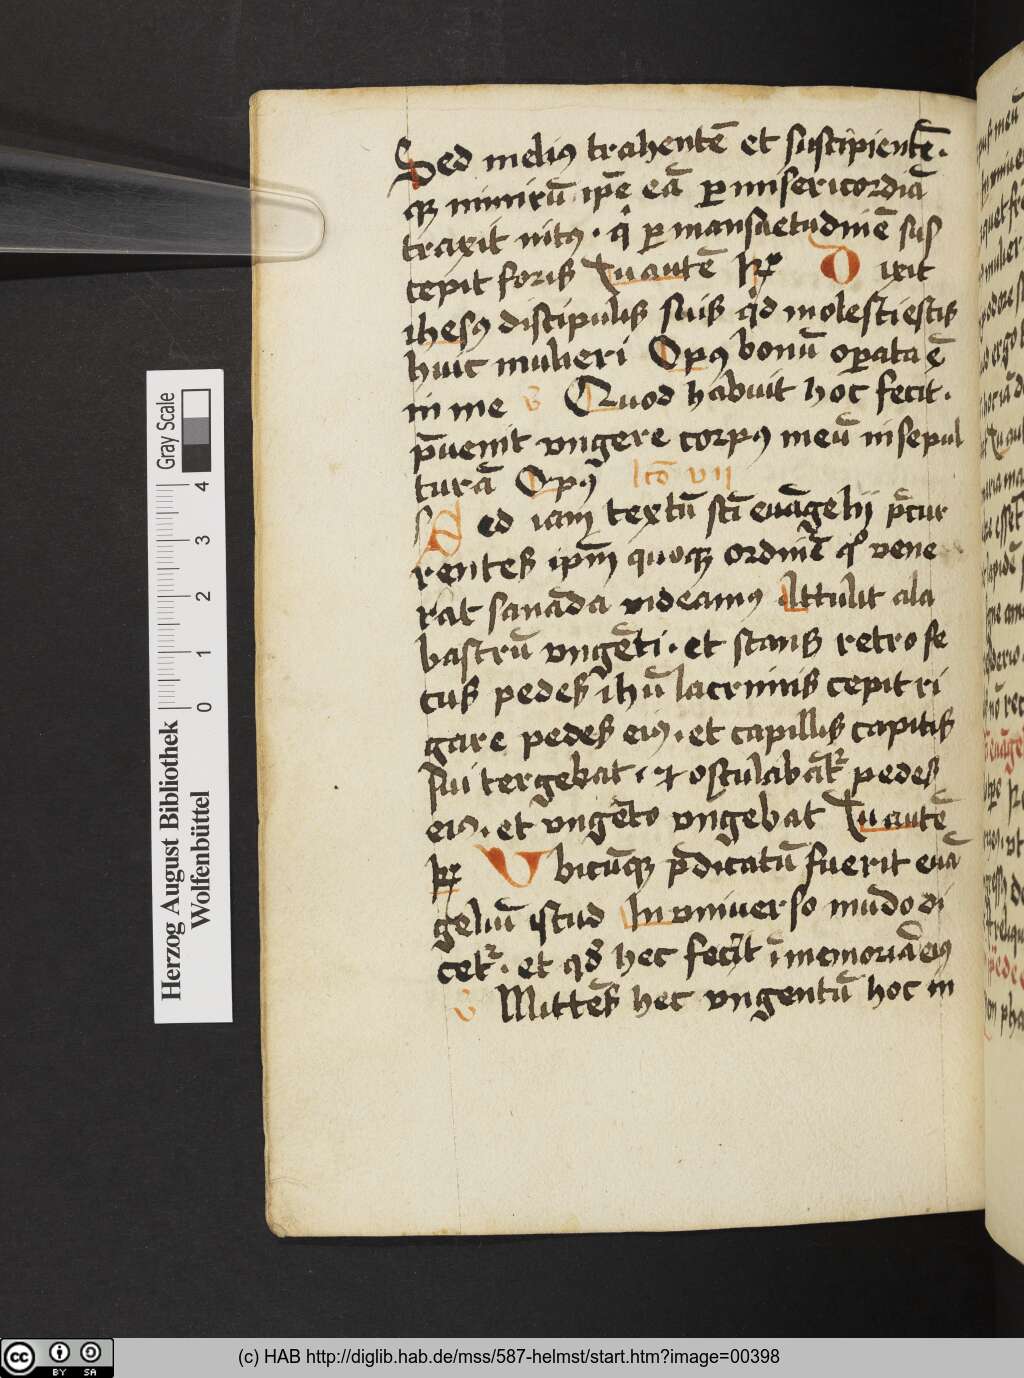 Sed melius trahentē et suscipientē.
qꝫ nimirū ip̄e eā ꝑ misericordiā
traxit intꝰ. q̇ ꝑ mansuetudinē sus
cepit foris Tu autē ꝶ Dixit
ihesꝰ discipulis suis qͥd molesti estis
huic mulieri Opꝰ bonū oꝑata ē
in me v Quod habuit hoc fecit.
p̄uenit vngere corpꝰ meū in sepul
turā Opꝰ lcō vii
Sed iam textū scī euāgelij p̄cur
rentes ipm̄ quoqꝫ ordinē qͦ vene
rat sanāda videamꝰ Attulit ala
bastrū vngēti. et stans retro se
cus pedes ihū lacrimis cepit ri
gare pedes eiꝰ. et capillis capitis
sui tergebat. et osculabat᷑ pedes
eiꝰ. et vngēto vngebat Tu autē
ꝶ Vbicūqꝫ p̄dicatū fuerit euā
geliū istud In vniuerso mūdo di
cet᷑. et qd̄ hec fecit ī memoriā eiꝰ
v Mittēs hec vngentū hoc in
Herzog August Bibliothek
Wolfenbüttel
0 1 2 3 4
Gray Scale
cc BY SA
(c) HAB http://diglib.hab.de/mss/587-helmst/start.htm?image=00398